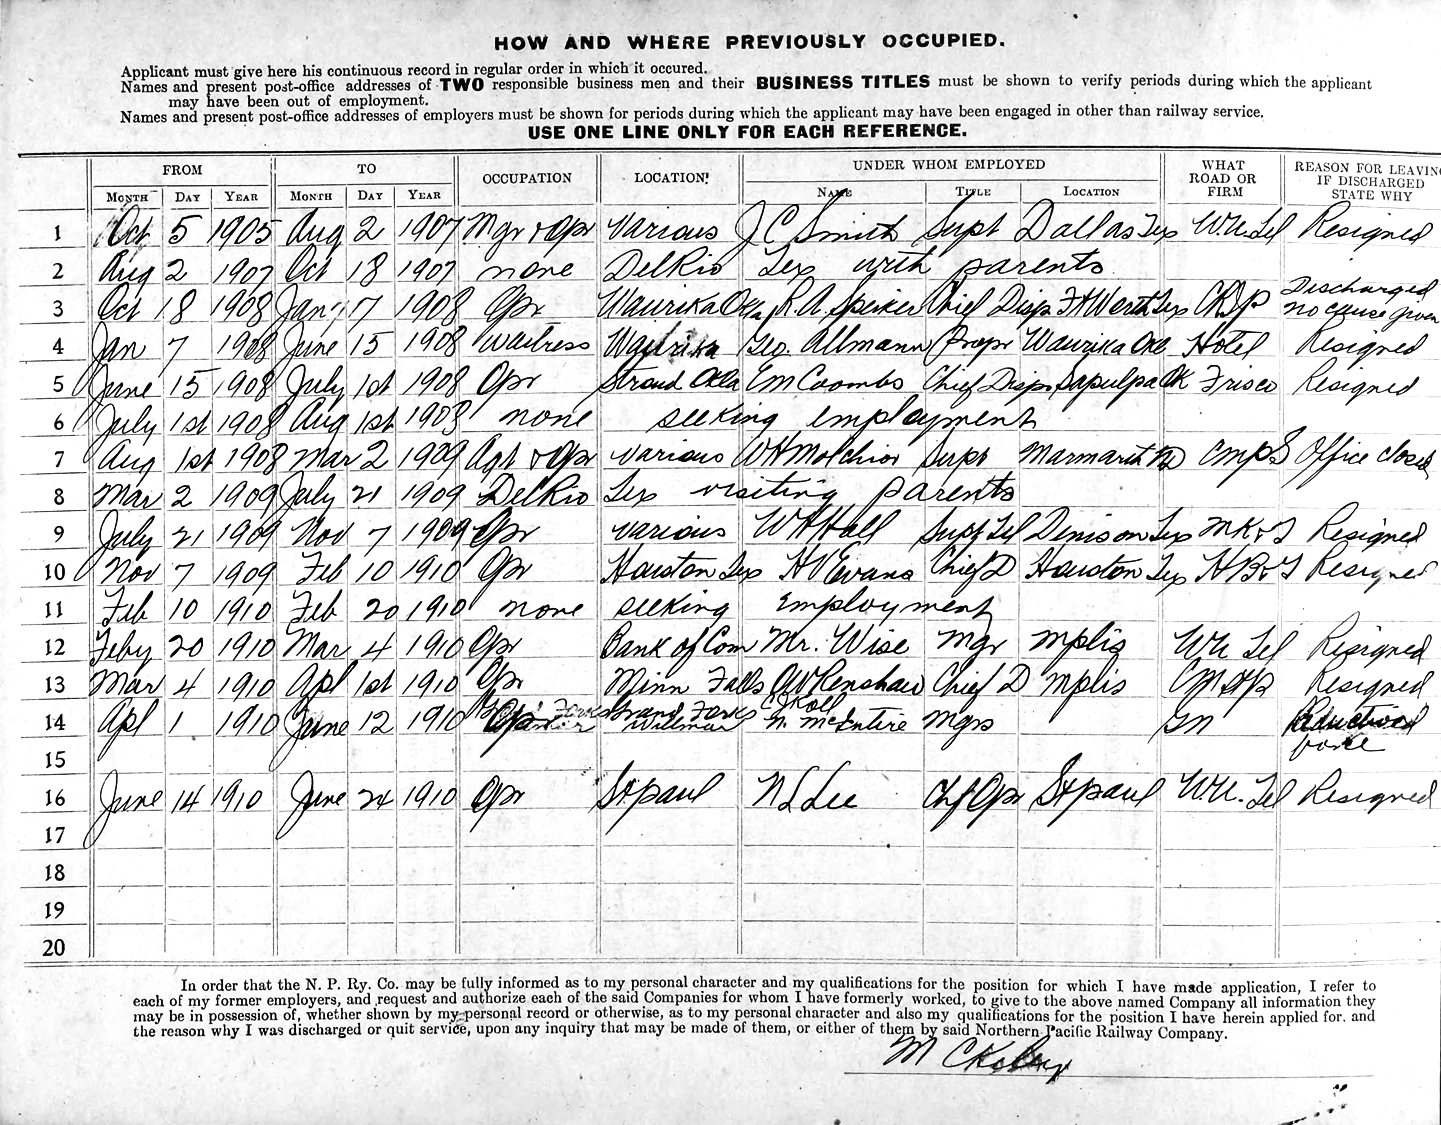 HOW AND WHERE PREVIOUSLY OCCUPIED.
Applicant must give here his continuous record in regular order in which it occured.
Names and present post-office addresses of TWO responsible business men and their BUSINESS TITLES must be shown to verify periods during which the applicant
may have been out of employment.
Names and present post-office addresses of employers must be shown for periods during which the applicant may have been engaged in other than railway service.
USE ONE LINE ONLY FOR EACH REFERENCE.
FROM TO OCCUPATION LOCATION UNDER WHOM EMPLOYED WHAT ROAD OR FIRM REASON FOR LEAVING IF DISCHARGED STATE WHY
MONTH DAY YEAR MONTH DAY YEAR NAME TITLE LOCATION
1 Oct 5 1905 Aug 2 1907 Mgr & Opr various J C Smith Supt Dallas Tex W.U. Tel Resigned
2 Aug 2 1907 Oct 18 1907 none DelRio Tex with parents
3 Oct 18 1908 Jan 7 1908 Opr Waurika Okla R. A. Speiker Chief Disp Ft Worth Tex CRIP Discharged no cause given
4 Jan 7 1908 June 15 1908 waitress Waurika Geo. Allmann Propr Waurika Okl Hotel Resigned
5 June 15 1908 July 1st 1908 Opr Stroud Okla EM Coombs Chief Dispr Sapulpa OK Frisco Resigned
6 July 1st 1908 Aug 1st 1908 none seeking employment
7 Aug 1st 1908 Mar 2 1909 Agt & Opr various WH Molchior Supt Marmarth ND CMPS Office closed
8 Mar 2 1909 July 21 1909 DelRio Tex visiting parents
9 July 21 1909 Nov 7 1909 Opr various W H Hall Supt Tel Denison Tex MK&T Resigned
10 Nov 7 1909 Feb 10 1910 Opr Houston Tex H V Evans Chief D Houston Tex H B&T Resigned
11 Feb 10 1910 Feb 20 1910 none seeking Employment
12 Feby 20 1910 Mar 4 1910 Opr Bank of Com Mr. Wise Mgr Mplis WU Tel Resigned
13 Mar 4 1910 Apl 1st 1910 Opr Minn Falls OW Renshaw Chief D Mplis CM&P Resigned
14 Apl 1 1910 June 12 1910 Opr Grand Forks Willmar McEntire Mgrs GN Reduction force
15
16 June 14 1910 June 24 1910 Opr St paul N L Lee Chf Opr St paul W.U. Tel Resigned
17
18
19
20
In order that the N. P. Ry. Co. may be fully informed as to my personal character and my qualifications for the position for which I have made application, I refer to
each of my former employers, and request and authorize each of the said Companies for whom I have formerly worked, to give to the above named Company all information they
may be in possession of, whether shown by my personal record or otherwise, as to my personal character and also my qualifications for the position I have herein applied for. and
the reason why I was discharged or quit service, upon any inquiry that may be made of them, or either of them by said Northern Pacific Railway Company.
M C